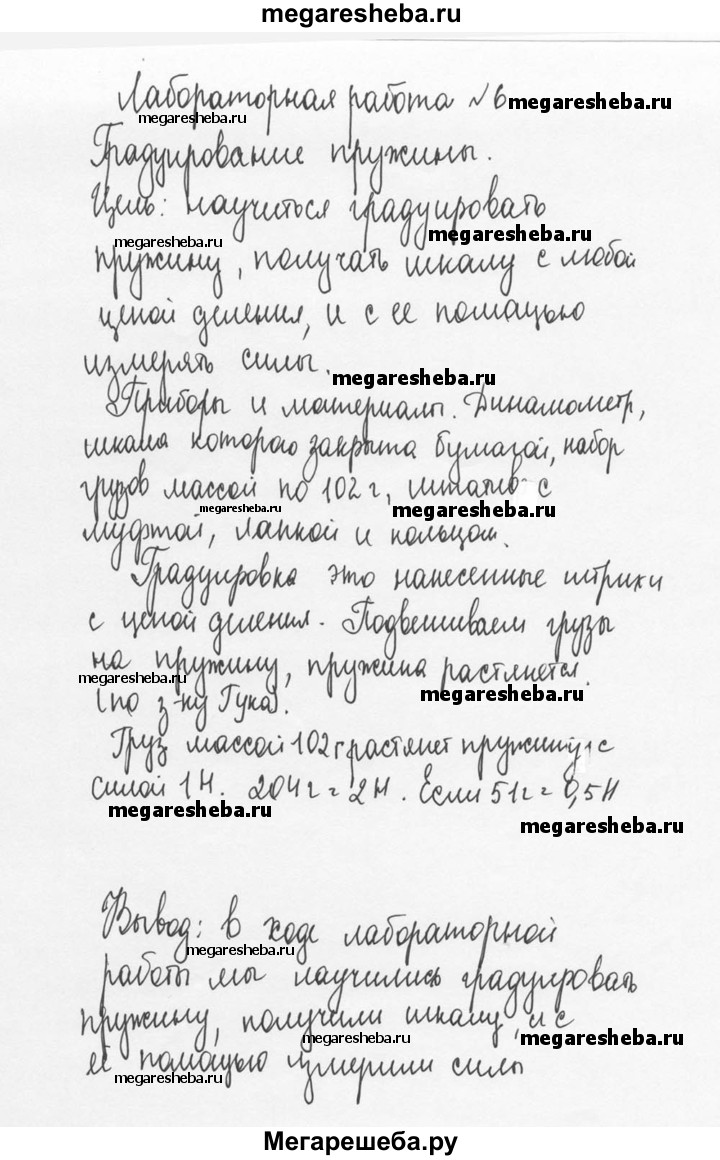 megaresheba.ru
Лабораторная работа №6 megaresheba.ru
megaresheba.ru
Градуирование пружины.
Цель: научиться градуировать
megaresheba.ru megaresheba.ru
пружину, получать шкалу с любой
ценой деления, и с ее помощью
измерять силы.
megaresheba.ru
Приборы и материалы. Динамометр,
шкала которого закрыта бумагой, набор
грузов массой по 102 г, штатив с
megaresheba.ru megaresheba.ru
муфтой, лапкой и кольцом.
Градуировка это нанесенные штрихи
с ценой деления. Подвешиваем грузы
на пружину, пружина растянется.
megaresheba.ru megaresheba.ru
(по з-ну Гука).
Груз массой 102 г растянет пружину с
силой 1 Н. 204 г = 2 Н. Если 51 г = 0,5 Н
megaresheba.ru
megaresheba.ru
Вывод: в ходе лабораторной
megaresheba.ru
работы мы научились градуировать
пружину, получили шкалу и с
megaresheba.ru megaresheba.ru
её помощью измерили силы
megaresheba.ru
Мегарешеба.ру